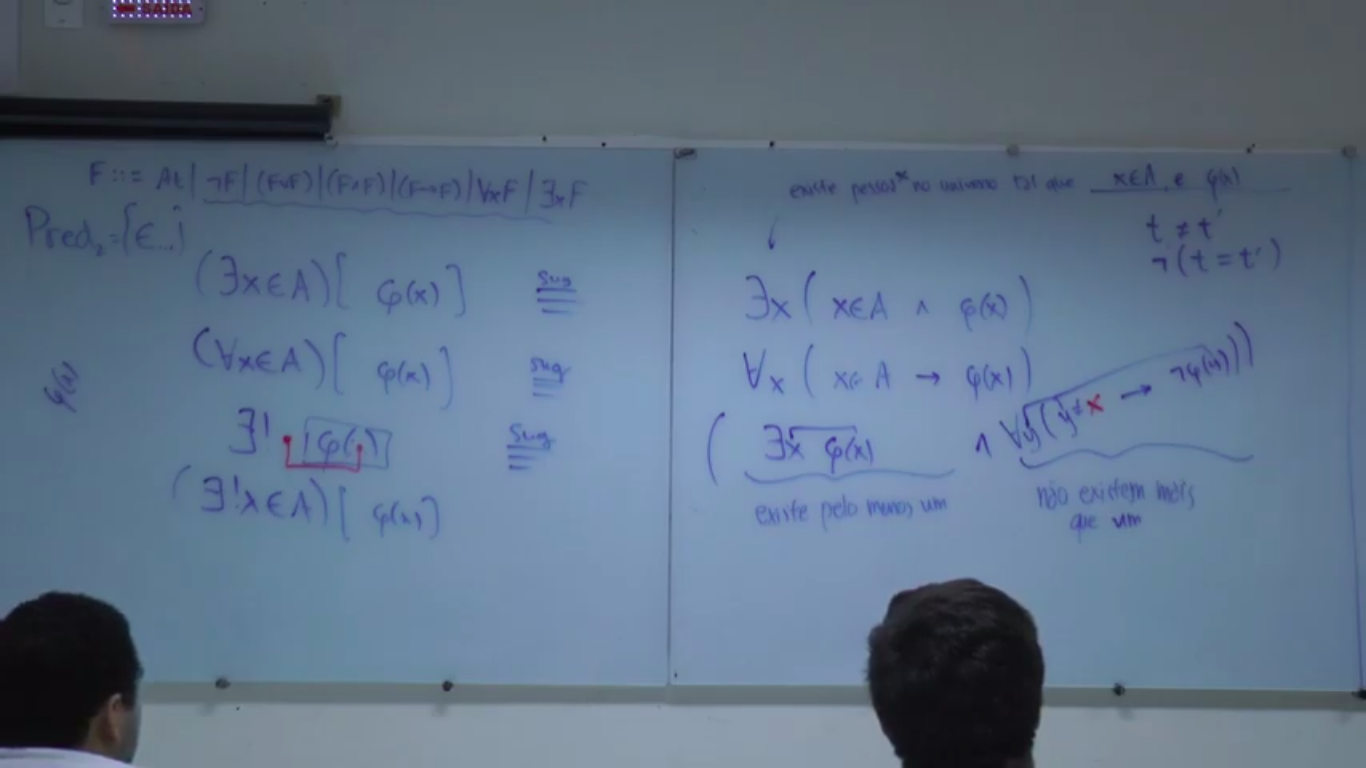 SAÍDA
F ::= At | ¬F | (F∨F) | (F∧F) | (F→F) | ∀xF | ∃xF
Pred₂={∈...}
(∃x∈A)[ φ(x) ] sug
(∀x∈A)[ φ(x) ] sug
φ(x)
∃! φ( ) sug
(∃!x∈A)[ φ(x) ]
existe pessoa x no universo tal que x∈A e φ(x)
t ≠ t'
¬(t = t')
∃x ( x∈A ∧ φ(x) )
∀x ( x∈A → φ(x) )
( ∃x φ(x) ∧ ∀y(y≠x → ¬φ(y)))
existe pelo menos um
não existem mais
que um